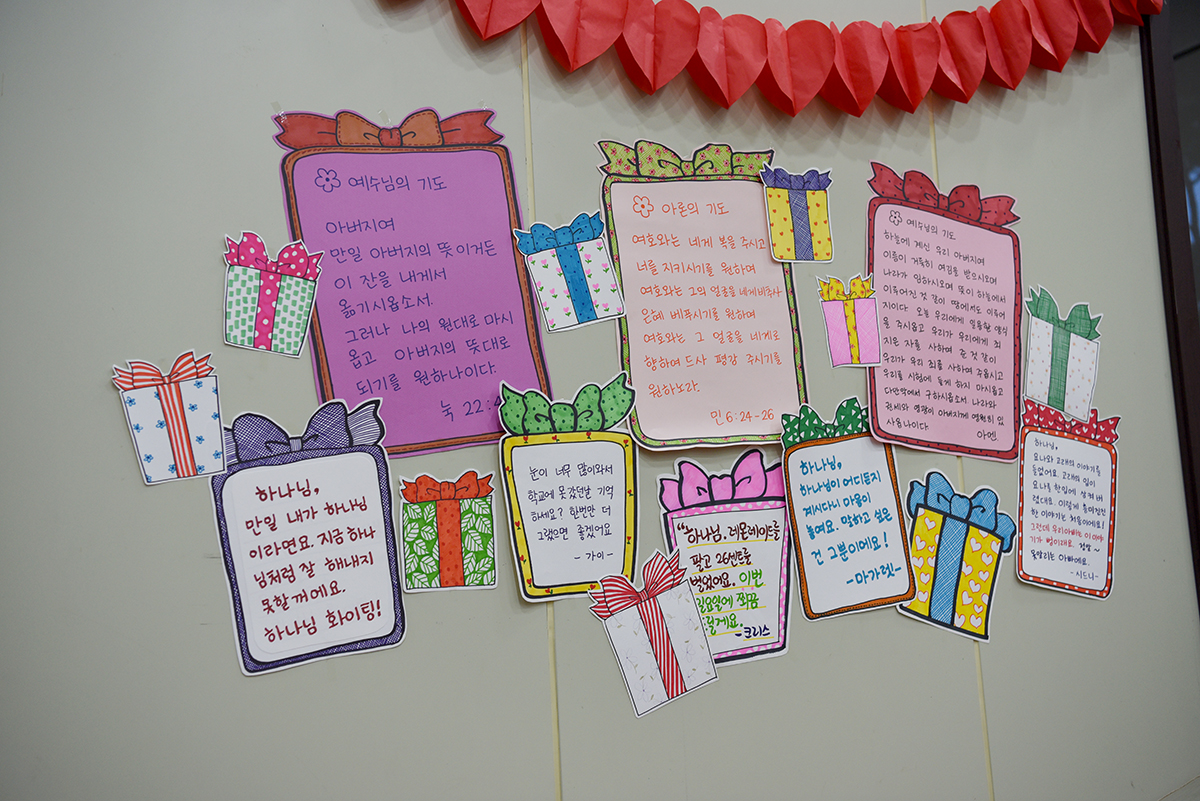 예수님의 기도
아버지여
만일 아버지의 뜻 이거든
이 잔을 내게서
옮기시옵소서.
그러나 나의 원대로 마시
옵고 아버지의 뜻대로
되기를 원하나이다.
눅 22:4
아론의 기도
여호와는 네게 복을 주시고
너를 지키시기를 원하며
여호와는 그의 얼굴을 네게 비추사
은혜 베푸시기를 원하며
여호와는 그 얼굴을 네게로
향하여 드사 평강 주시기를
원하노라.
민 6:24-26
예수님의 기도
하늘에 계신 우리 아버지여
이름이 거룩히 여김을 받으시오며
나라가 임하시오며 뜻이 하늘에서
이루어진 것 같이 땅에서도 이루어
지이다 오늘 우리에게 일용할 양식
을 주시옵고 우리가 우리에게 죄
지은 자를 사하여 준 것 같이
우리가 우리 죄를 사하여 주옵시고
우리를 시험에 들게 하지 마시옵고
다만악에서 구하시옵소서 나라와
권세와 영광이 아버지께 영원히 있
사옵나이다. 아멘.
하나님,
만일 내가 하나님
이라면요. 지금 하나
님처럼 잘 해내지
못할꺼에요.
하나님 화이팅!
눈이 너무 많이와서
학교에 못갔던날 기억
하세요? 한번만 더
그랬으면 좋겠어요
- 가이 -
"하나님, 레몬레이드를
팔고 26센트를
벌었어요. 이번
일요일에 쬐끔
드릴게요.
-크리스
하나님,
하나님이 어디든지
계시다니 마음이
놓여요. 말하고 싶은
건 그뿐이에요!
-마가렛-
하나님,
요나와 고래의 이야기를
들었어요. 고래의 입이
요나를 한입에 삼켜 버
렸대요. 이렇게 흥미진진
한 이야기는 처음이에요!
그런데 우리아빠는 이 이야
기가 뻥이래요. 정말~
못말리는 아빠예요.
-시드니-